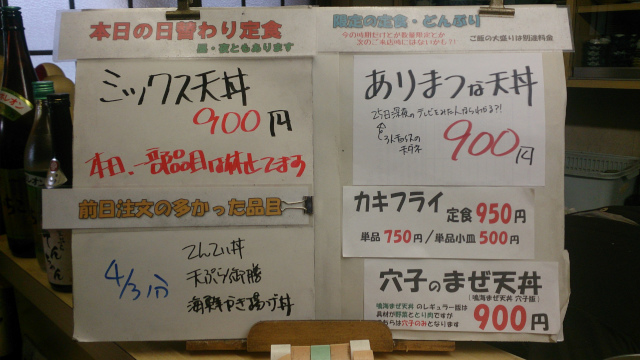 本日の日替わり定食
昼・夜ともあります
ミックス天丼
900円
本日、一部品目は休止してます
前日注文の多かった品目
4/3分
てんてい丼
天ぷら御膳
海鮮かき揚げ丼
限定の定食・どんぶり
ご飯の大盛りは別途料金
ありまつな天丼
900円
カキフライ
定食 950円
単品 750円/単品小皿 500円
穴子のまぜ天丼
(鳴海まぜ天丼 穴子版)
鳴海まぜ天丼 のレギュラー版は
具材が野菜ととり肉ですが
こちらは穴子のみとなります
900円